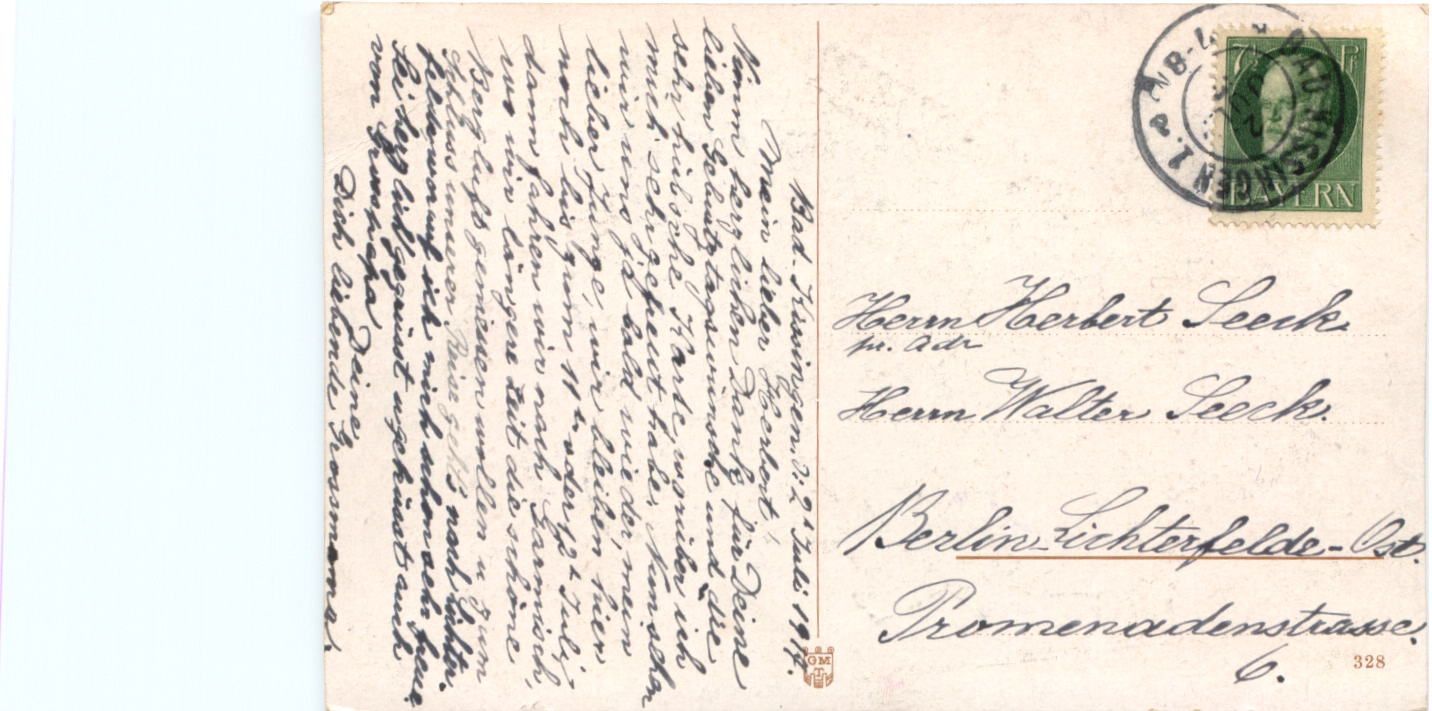 Bad-Kissingen, d. 2t Juli 1917.
Mein lieber Herbert!
Nimm herzlichen Dank für Deine
lieben Geburtstagswünsche und die
sehr hübsche Karte, worüber ich
mich sehr gefreut habe. Nun sehen
wir uns ja bald wieder, mein
lieber Junge, wir bleiben hier
noch bis zum 11t oder 12t Juli,
dann fahren wir nach Garmisch,
wo wir längere Zeit die schöne
Bergluft geniessen wollen u zum
Schluss unserer Reise geht's nach Lichter-
felde worauf ich mich schon sehr freue.
Sei herzlich gegrüsst u geküsst auch
von Grosspapa Deine
Dich liebende Grossmama.
7½ Pf
BAYERN
BAD KISSINGEN 1.
Herrn Herbert Seeck
pr. Adr
Herrn Walter Seeck.
Berlin-Lichterfelde-Ost.
Promenadenstrasse.
6.
GM
T
328